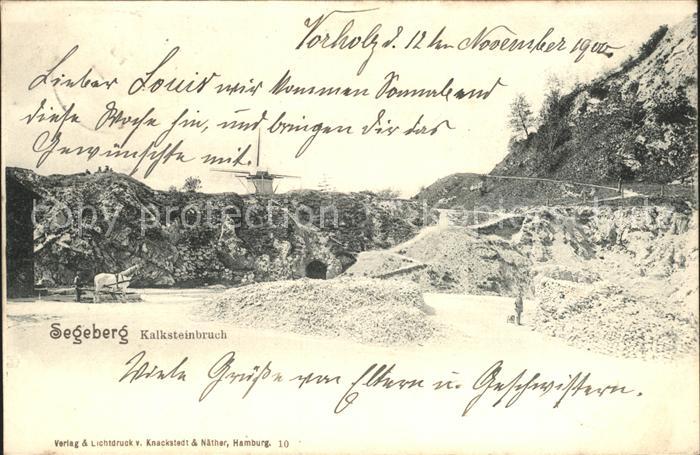 Vorholz d. 12ten November 1900
Lieber Louis wir kommen Sonnabend
diese Woche hin, und bringen dir das
Gewünschte mit.
copy protection by koenig
Segeberg Kalksteinbruch
Viele Grüße von Eltern u. Geschwistern.
Verlag & Lichtdruck v. Knackstedt & Näther, Hamburg. 10